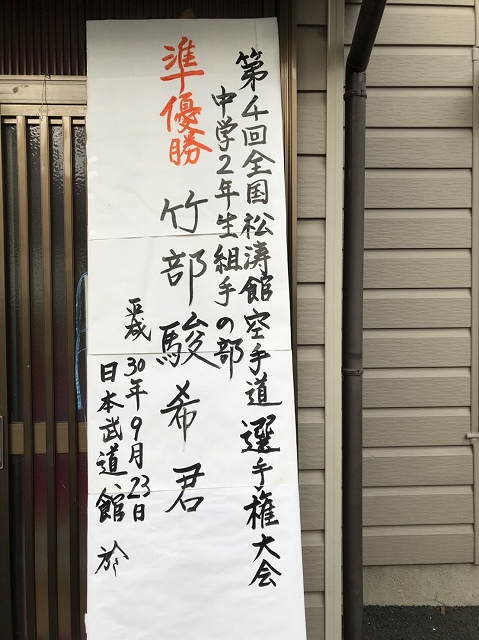 第4回全国松涛館空手道選手権大会
中学2年生組手の部
準優勝 竹部駿希君
平成30年9月23日
日本武道館 於